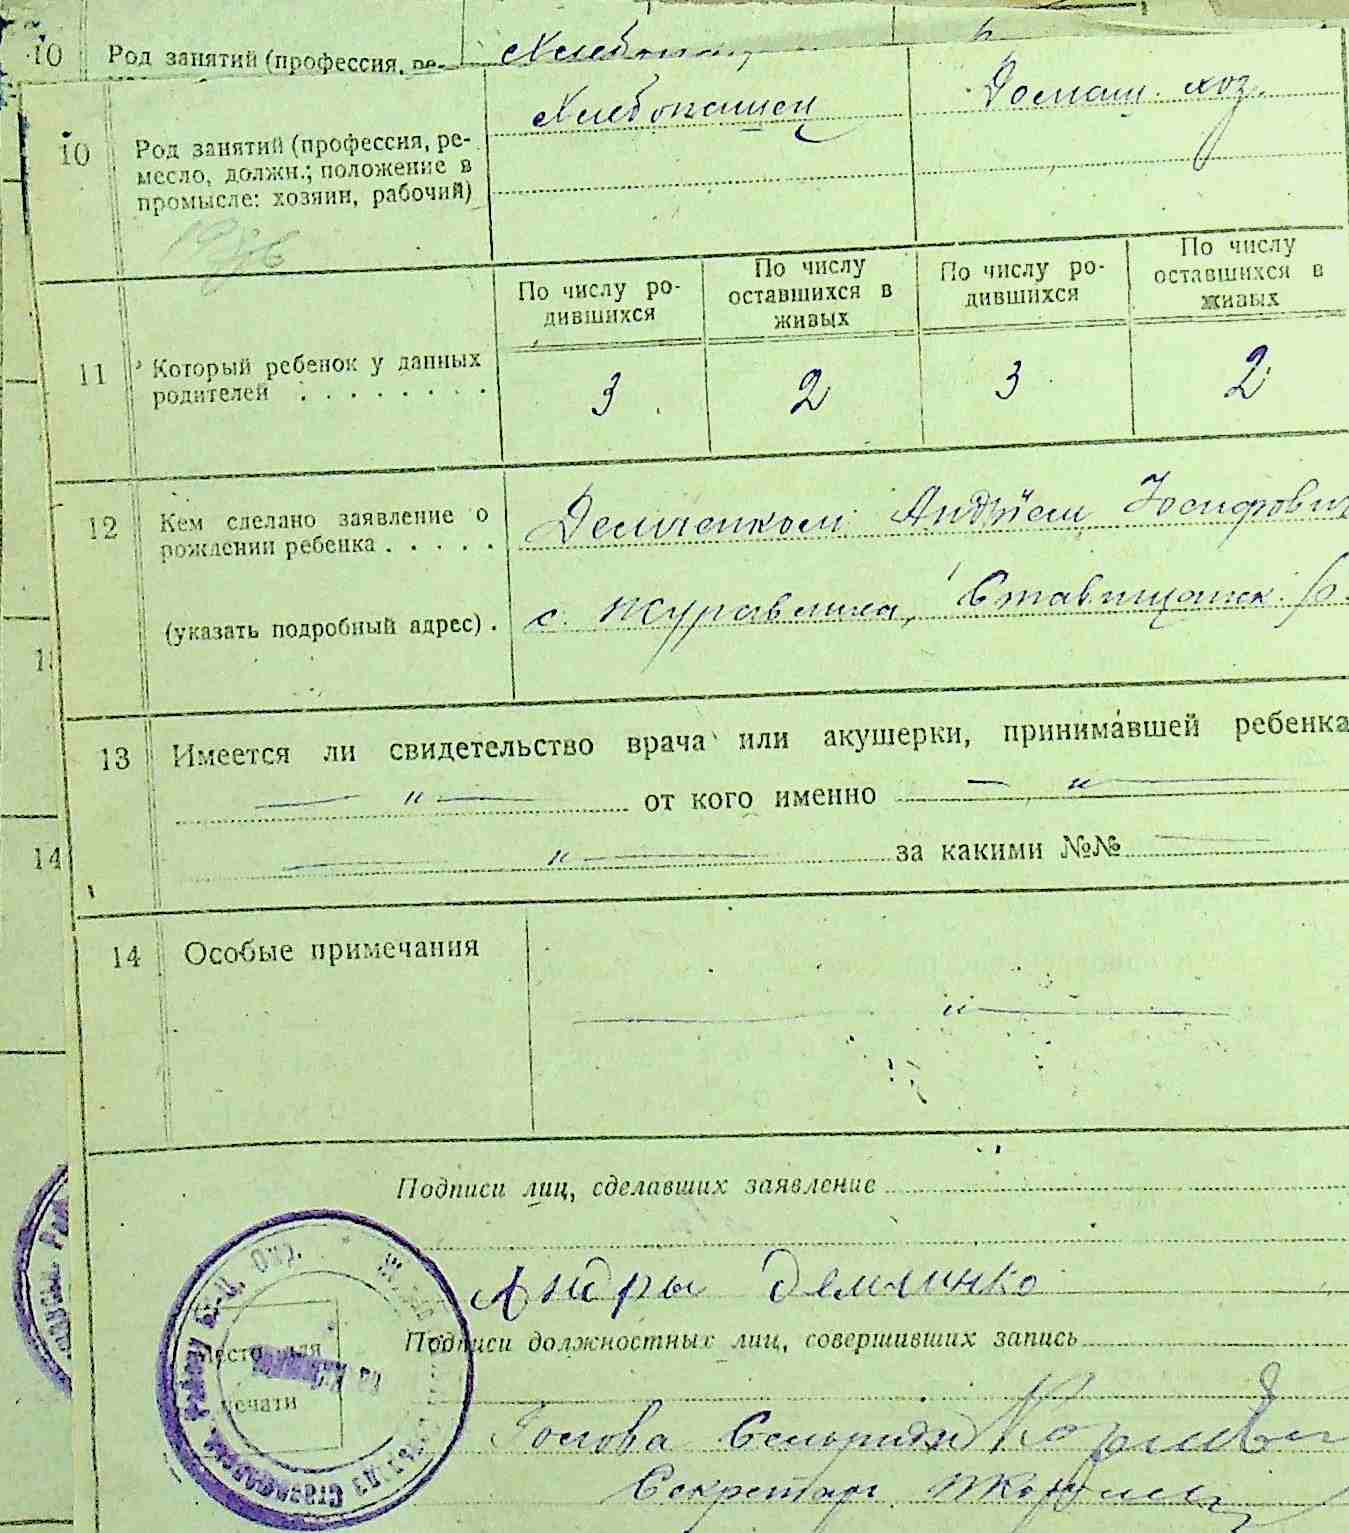 10 Род занятий (профессия, ре-
10 Род занятий (профессия, ре-
месло, должн.; положение в
промысле: хозяин, рабочий)
Хлебопашец
Домаш. хоз.
По числу ро-
дившихся
По числу
оставшихся в
живых
По числу ро-
дившихся
По числу
оставшихся в
живых
11 Который ребенок у данных
родителей . . . . . . . .
3 2 3 2
12 Кем сделано заявление о
рождении ребенка . . . . .
Демченком Андрїем
(указать подробный адрес) .
с. Журавлиха, Ставищанск. р.
13 Имеется ли свидетельство врача или акушерки, принимавшей ребенка
— " — от кого именно — " —
— " — за какими №№ —
14 Особые примечания
— " —
Подписи лиц, сделавших заявление
Андры Демчинко
Подписи должностных лиц, совершивших запись
Место для
печати
Голова Сельради
Секретарь